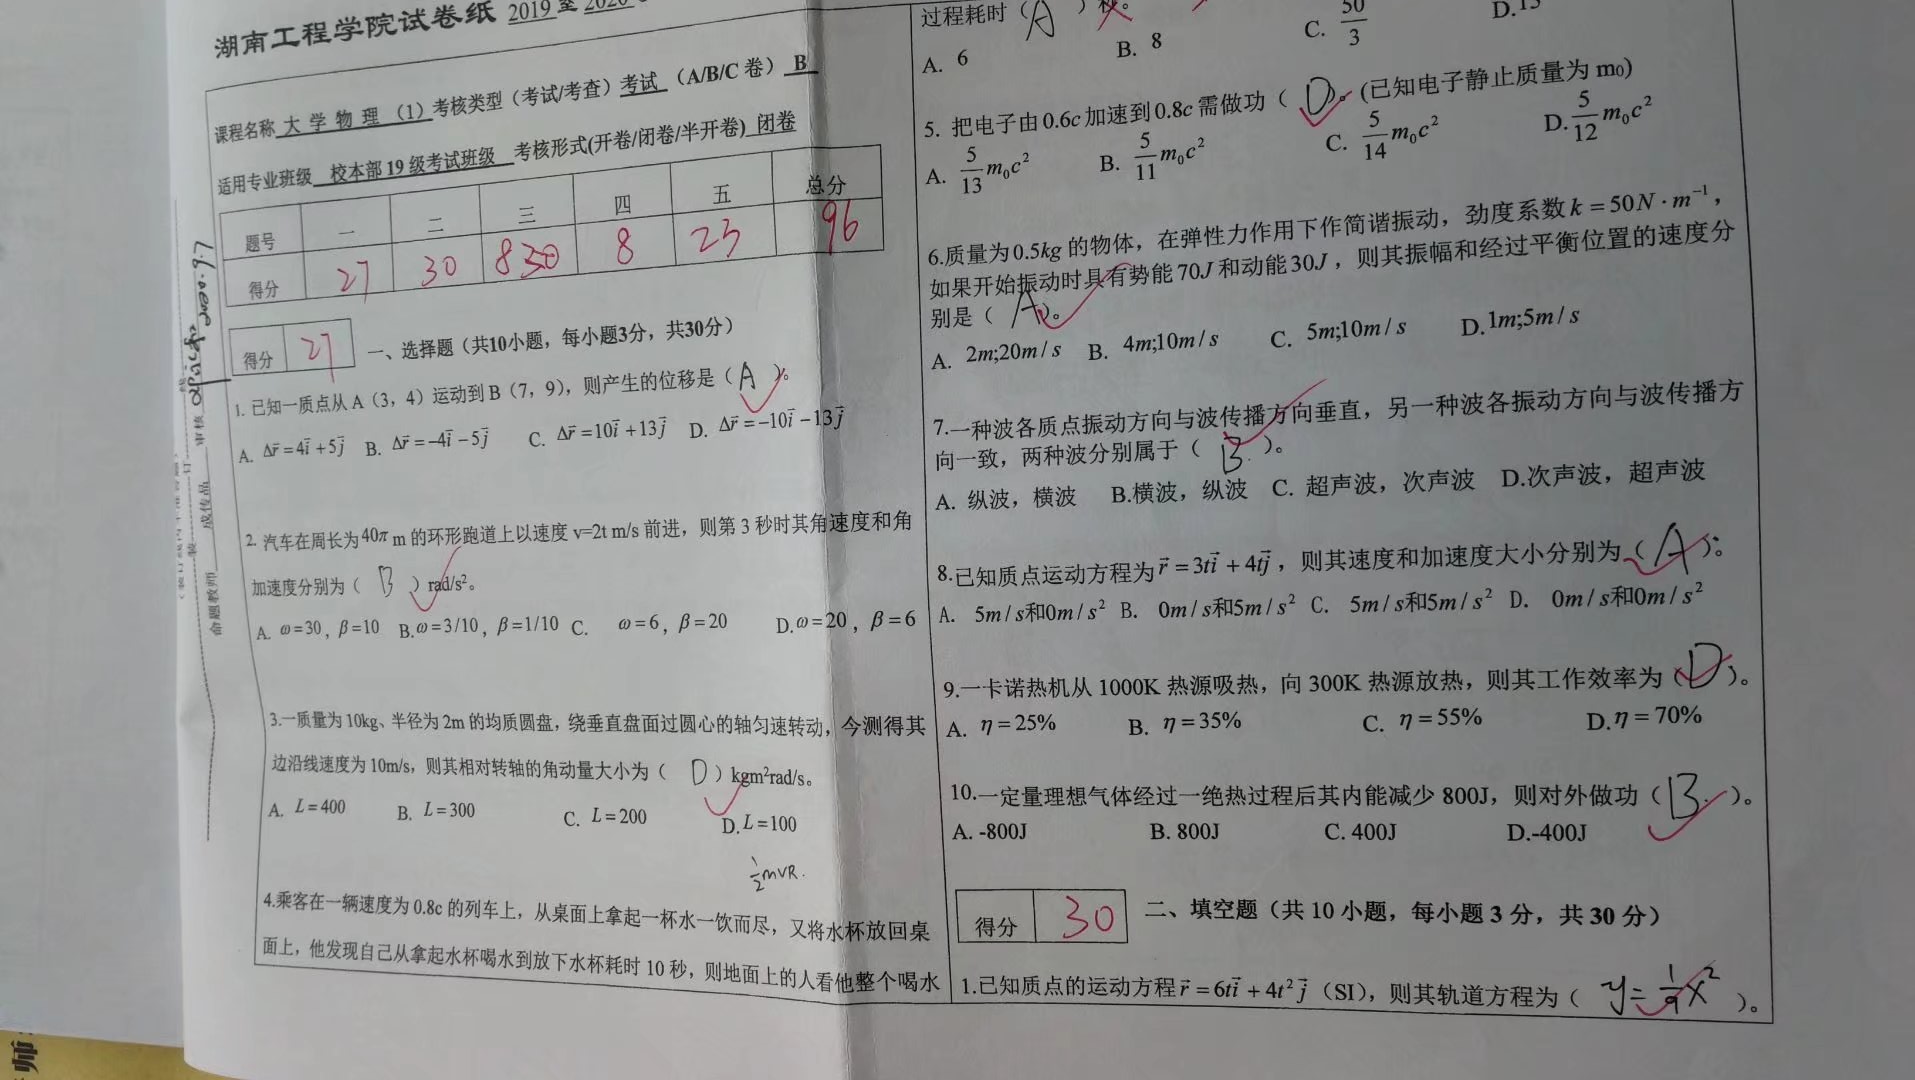 湖南工程学院试卷纸 2019 至 2020
课程名称 大 学 物 理 （1） 考核类型（考试/考查）考试 （A/B/C 卷） B
适用专业班级 校本部 19 级考试班级 考核形式(开卷/闭卷/半开卷) 闭卷
题号 一 二 三 四 五 总分
得分 27 30 8 8 23 96
得分 27 一、选择题（共10小题，每小题3分，共30分）
1. 已知一质点从 A（3，4）运动到 B（7，9），则产生的位移是（ A ）。
A. Δr⃗ = 4i⃗ + 5j⃗ B. Δr⃗ = −4i⃗ − 5j⃗ C. Δr⃗ = 10i⃗ + 13j⃗ D. Δr⃗ = −10i⃗ − 13j⃗
2. 汽车在周长为 40π m 的环形跑道上以速度 v=2t m/s 前进，则第 3 秒时其角速度和角
加速度分别为（ B ）rad/s²。
A. ω=30，β=10 B. ω=3/10，β=1/10 C. ω=6，β=20 D. ω=20，β=6
3.一质量为 10kg、半径为 2m 的均质圆盘，绕垂直盘面过圆心的轴匀速转动，今测得其
边沿线速度为 10m/s，则其相对转轴的角动量大小为（ D ）kgm²rad/s。
A. L=400 B. L=300 C. L=200 D. L=100
½mVR.
4.乘客在一辆速度为 0.8c 的列车上，从桌面上拿起一杯水一饮而尽，又将水杯放回桌
面上，他发现自己从拿起水杯喝水到放下水杯耗时 10 秒，则地面上的人看他整个喝水
命题教师 成传品 审核 2020.9.7
过程耗时（ A ）秒。
A. 6 B. 8 C. 50/3 D.
5. 把电子由 0.6c 加速到 0.8c 需做功（ D ）。(已知电子静止质量为 m₀)
A. 5/13 m₀c² B. 5/11 m₀c² C. 5/14 m₀c² D. 5/12 m₀c²
6.质量为 0.5kg 的物体，在弹性力作用下作简谐振动，劲度系数 k = 50N · m⁻¹，
如果开始振动时具有势能 70J 和动能 30J，则其振幅和经过平衡位置的速度分
别是（ A ）。
A. 2m;20m/s B. 4m;10m/s C. 5m;10m/s D. 1m;5m/s
7.一种波各质点振动方向与波传播方向垂直，另一种波各振动方向与波传播方
向一致，两种波分别属于（ B ）。
A. 纵波，横波 B.横波，纵波 C. 超声波，次声波 D.次声波，超声波
8.已知质点运动方程为 r⃗ = 3ti⃗ + 4tj⃗，则其速度和加速度大小分别为（ A ）。
A. 5m/s和0m/s² B. 0m/s和5m/s² C. 5m/s和5m/s² D. 0m/s和0m/s²
9.一卡诺热机从 1000K 热源吸热，向 300K 热源放热，则其工作效率为（ D ）。
A. η = 25% B. η = 35% C. η = 55% D. η = 70%
10.一定量理想气体经过一绝热过程后其内能减少 800J，则对外做功（ B ）。
A. -800J B. 800J C. 400J D.-400J
得分 30 二、填空题（共 10 小题，每小题 3 分，共 30 分）
1.已知质点的运动方程 r⃗ = 6ti⃗ + 4t²j⃗（SI），则其轨道方程为（ y = 1/9 x² ）。
师